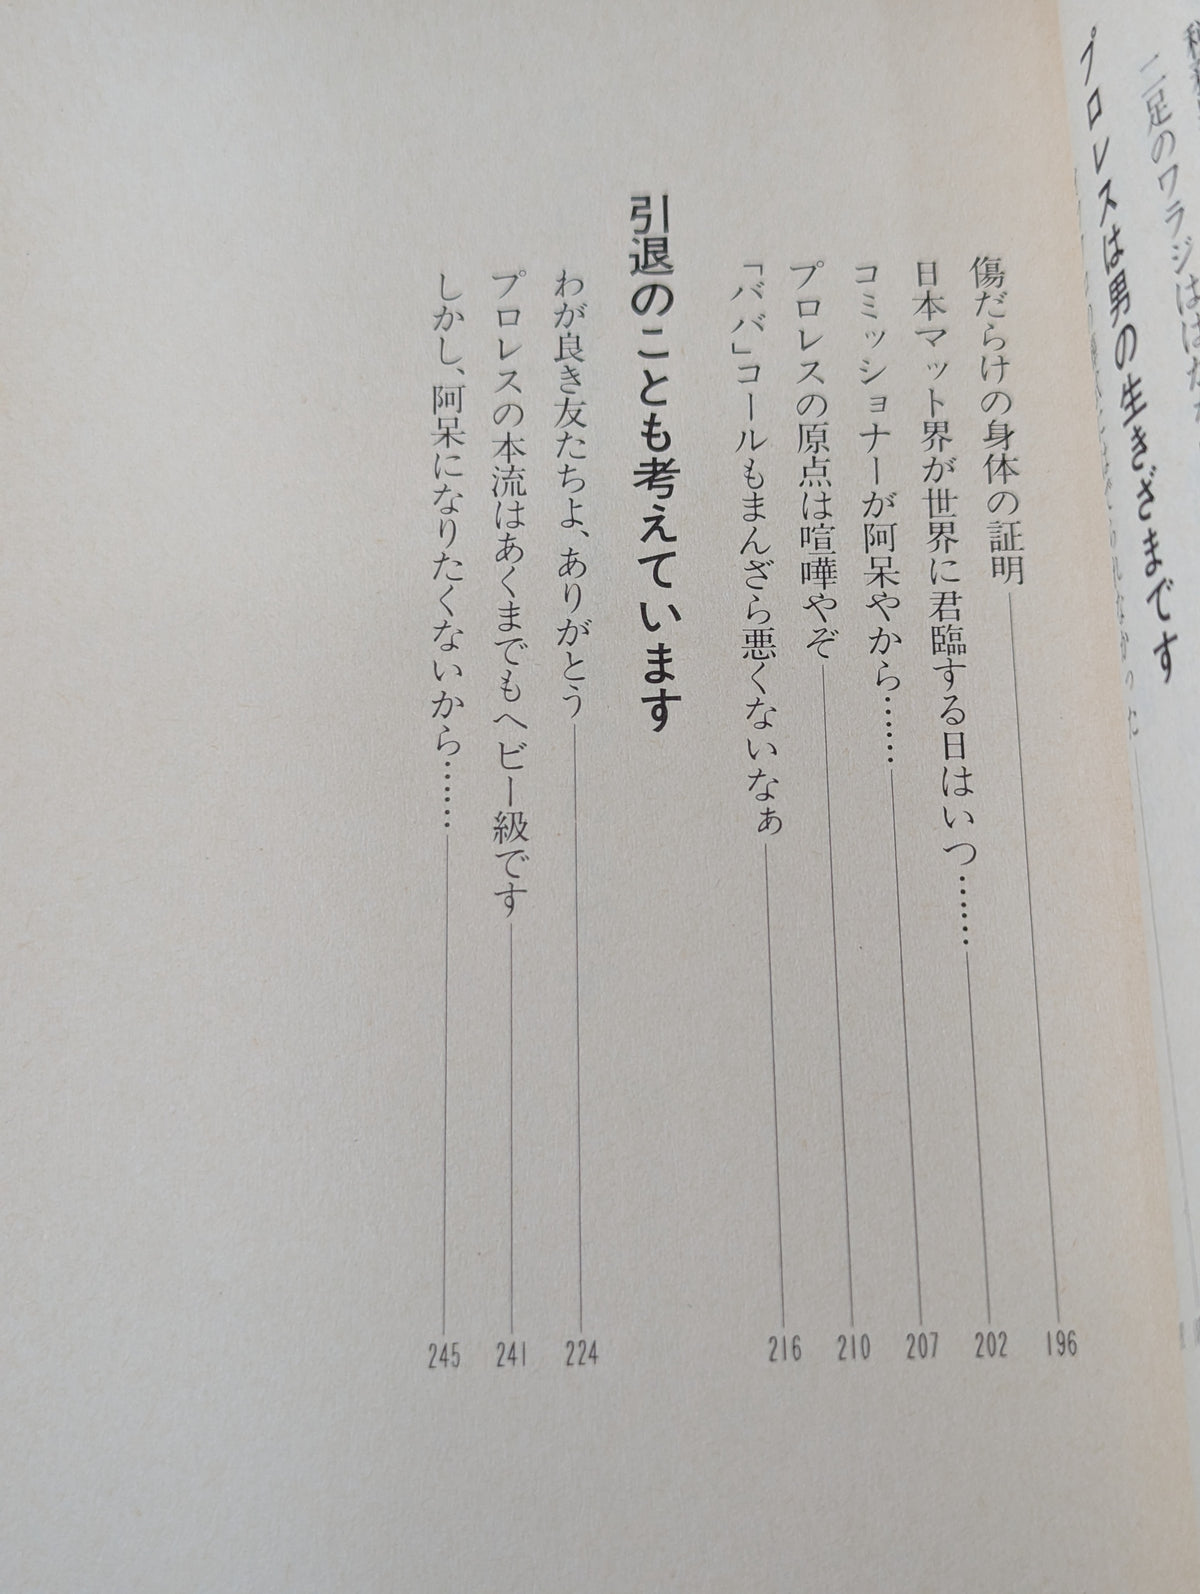 二足のワラジは
プロレスは男の生きざまです
傷だらけの身体の証明 196
日本マット界が世界に君臨する日はいつ…… 202
コミッショナーが阿呆やから…… 207
プロレスの原点は喧嘩やぞ 210
「ババ」コールもまんざら悪くないなぁ 216
引退のことも考えています
わが良き友たちよ、ありがとう 224
プロレスの本流はあくまでもヘビー級です 241
しかし、阿呆になりたくないから…… 245